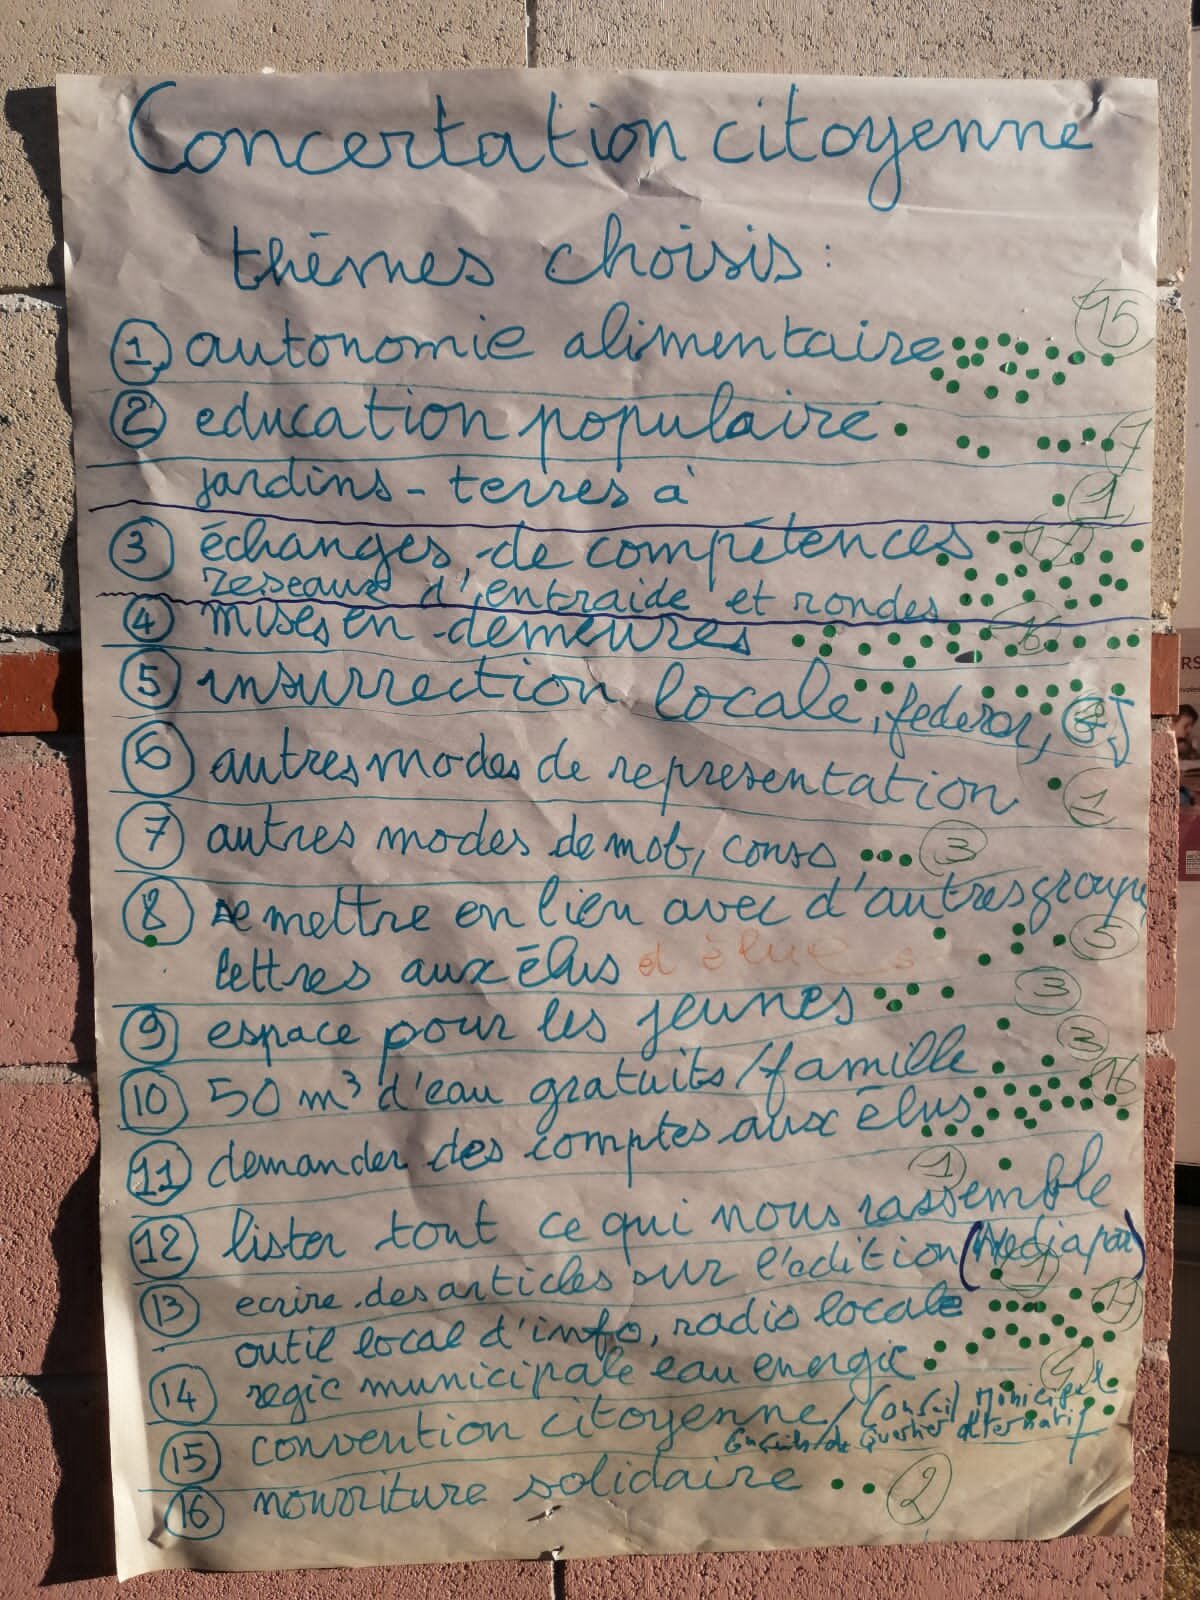 Concertation citoyenne
thèmes choisis :
15
1 autonomie alimentaire
2 education populaire 7
jardins - terres à 1
3 échanges, de compétences 17
reseaux d'entraide et rondes
4 mises en demeures 16
5 insurrection locale, federer,
6 autres modes de representation 1
7 autres modes de mob, conso 3
8 se mettre en lien avec d'autres groupes
lettres aux élus et élues 5
9 espace pour les jeunes 3
10 50 m³ d'eau gratuits / famille 3
16
11 demander des comptes aux élus
1
12 lister tout ce qui nous rassemble
13 ecrire des articles sur l'edition (Mediapart) 1
outil local d'info, radio locale 17
14 regie municipale eau energie
15 convention citoyenne / Conseil Municipal
Conseils de Quartier Alternatif
16 nourriture solidaire 2
RS